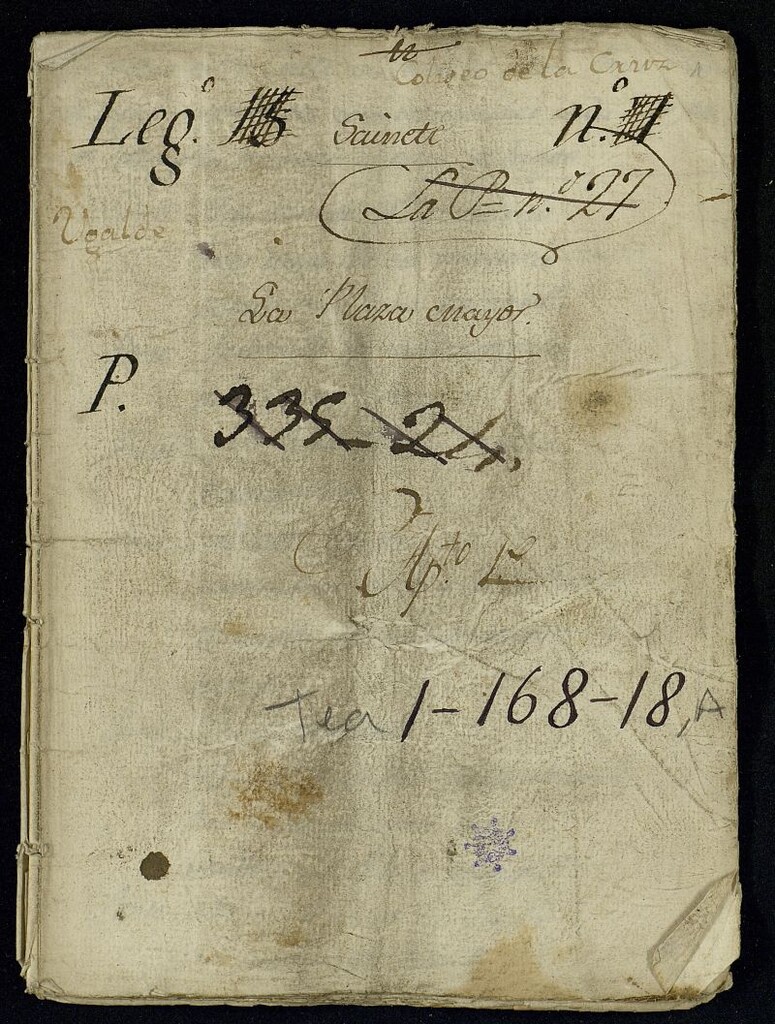 Coliseo de la Cruz
Leg.º Sainete n.º
La P= n.º 27
Ugalde
La Plaza mayor.
P.
Ap.to
Tea 1-168-18, A